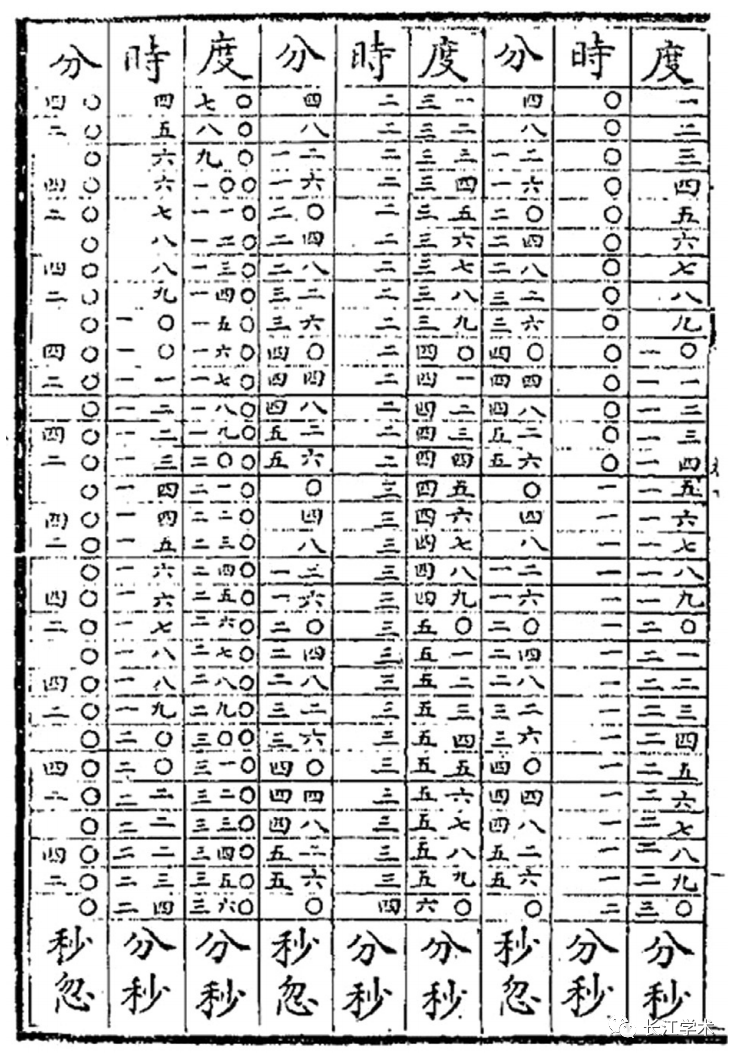 分 時 度 分 時 度 分 時 度
四〇 四 七〇 四 二 三一 四 〇 一
二〇 五 八〇 八 二 三二 八 〇 二
〇 六 九〇 一二 二 三三 一二 〇 三
四〇 六 一〇〇 一六 二 三四 一六 〇 四
二〇 七 一一〇 二〇 二 三五 二〇 〇 五
〇 八 一二〇 二四 二 三六 二四 〇 六
四〇 八 一三〇 二八 二 三七 二八 〇 七
二〇 九 一四〇 三二 二 三八 三二 〇 八
〇 一〇 一五〇 三六 二 三九 三六 〇 九
四〇 一〇 一六〇 四〇 二 四〇 四〇 〇 一〇
二〇 一一 一七〇 四四 二 四一 四四 〇 一一
〇 一二 一八〇 四八 二 四二 四八 〇 一二
四〇 一二 一九〇 五二 二 四三 五二 〇 一三
二〇 一三 二〇〇 五六 二 四四 五六 〇 一四
〇 一四 二一〇 〇 三 四五 〇 一 一五
四〇 一四 二二〇 四 三 四六 四 一 一六
二〇 一五 二三〇 八 三 四七 八 一 一七
〇 一六 二四〇 一二 三 四八 一二 一 一八
四〇 一六 二五〇 一六 三 四九 一六 一 一九
二〇 一七 二六〇 二〇 三 五〇 二〇 一 二〇
〇 一八 二七〇 二四 三 五一 二四 一 二一
四〇 一八 二八〇 二八 三 五二 二八 一 二二
二〇 一九 二九〇 三二 三 五三 三二 一 二三
〇 二〇 三〇〇 三六 三 五四 三六 一 二四
四〇 二〇 三一〇 四〇 三 五五 四〇 一 二五
二〇 二二 三二〇 四四 三 五六 四四 一 二六
〇 二二 三三〇 四八 三 五七 四八 一 二七
四〇 二二 三四〇 五二 三 五八 五二 一 二八
二〇 二三 三五〇 五六 三 五九 五六 一 二九
〇 二四 三六〇 〇 四 六〇 〇 二 三〇
秒忽 分秒 分秒 秒忽 分秒 分秒 秒忽 分秒 分秒
长江学术